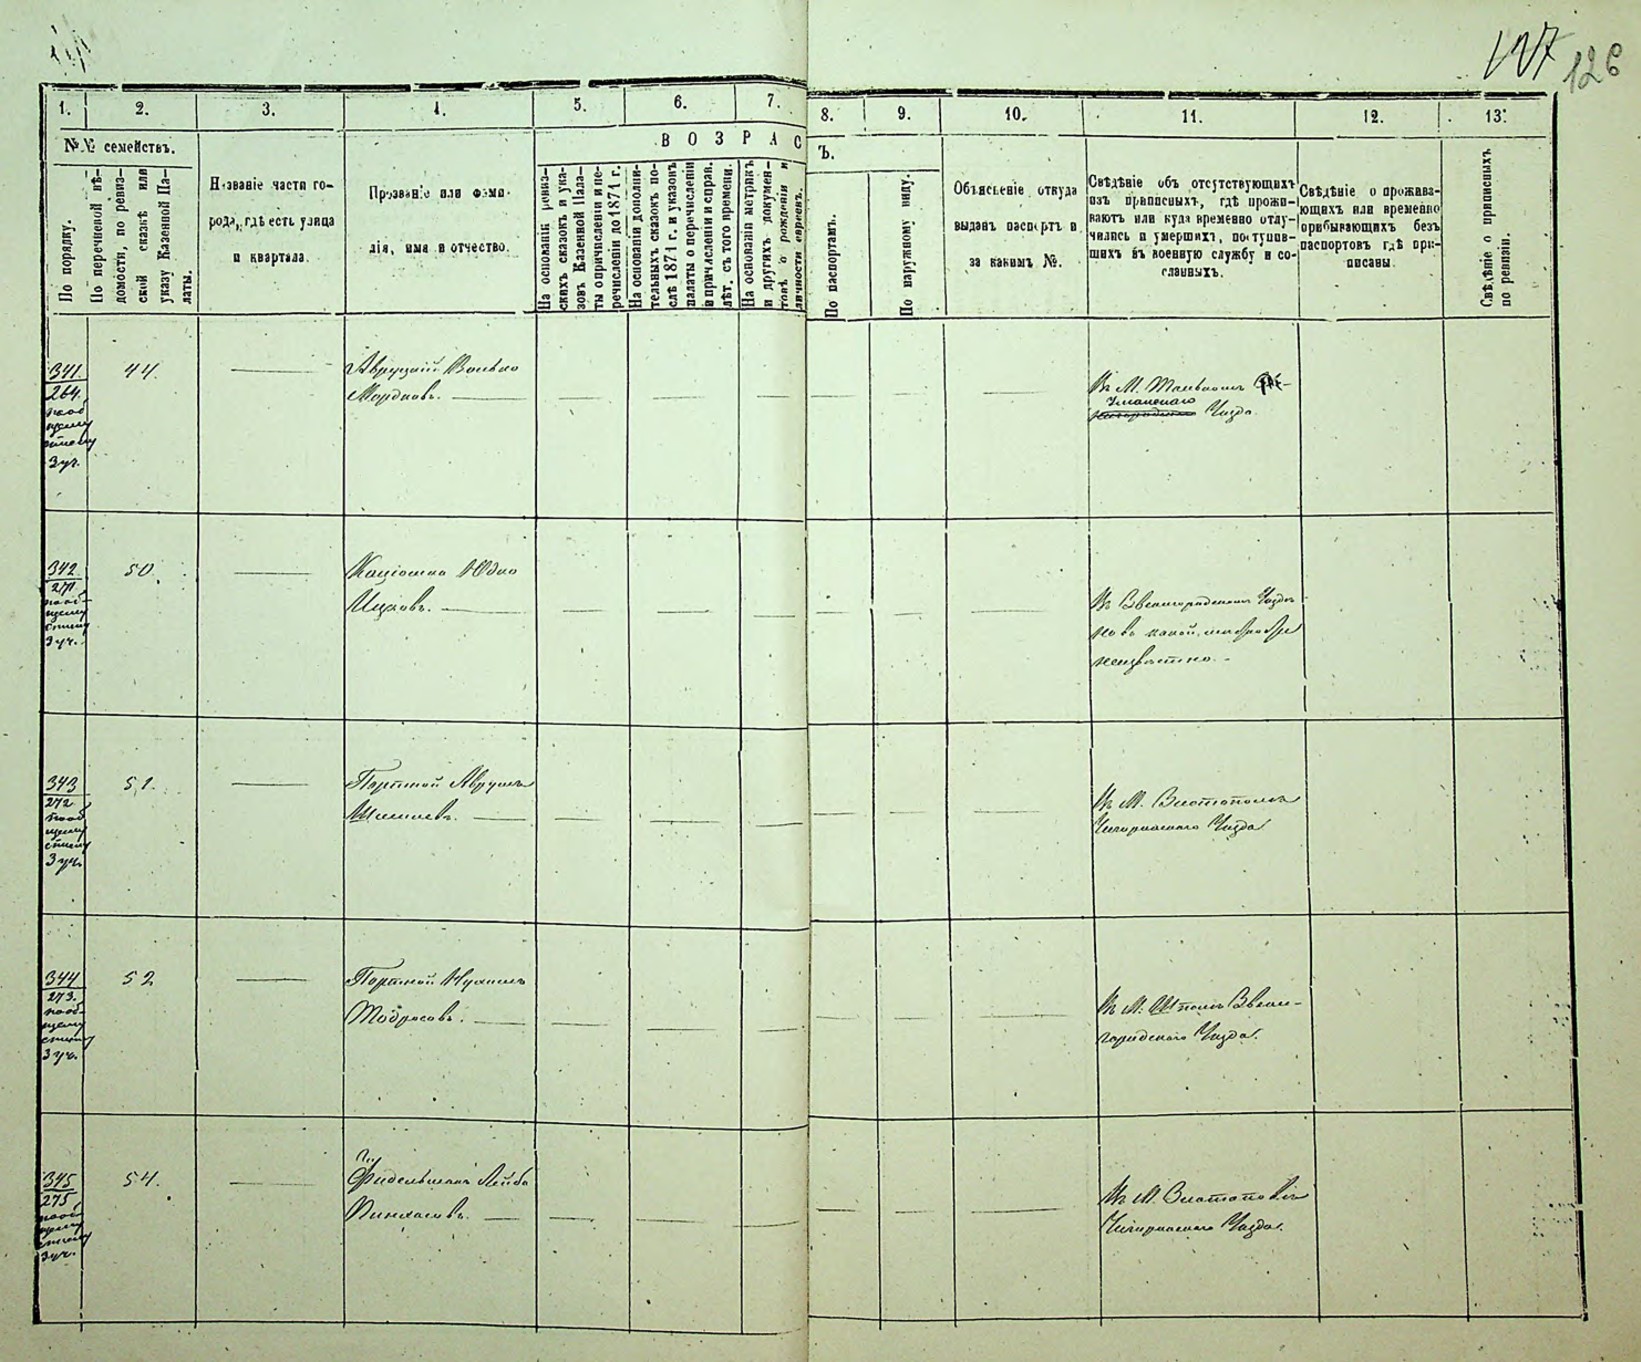 127 126
1. 2. 3. 4. 5. 6. 7. 8. 9. 10. 11. 12. 13.
№№ семействъ.
По порядку.
По перечневой вѣ-
домости, по ревиз-
ской сказкѣ или
указу Казенной Па-
латы.
Названіе части го-
рода, гдѣ есть улица
и квартала.
Прозваніе или фами-
лія, имя и отчество.
ВОЗРАСТЪ.
На основаніи ревиз-
скихъ сказокъ и ука-
зовъ Казенной Пала-
ты о причисленіи и пе-
речисленіи до 1871 г.
На основаніи дополни-
тельныхъ сказокъ по-
слѣ 1871 г. и указовъ
палаты о перечисленіи
и причисленіи и справ.
лѣт. съ того времени.
На основаніи метрикъ
и другихъ докумен-
товъ о рожденіи и
личности евреевъ.
По паспортамъ.
По наружному виду.
Объясненіе откуда
выданъ паспортъ и
за какимъ №.
Свѣдѣніе объ отсутствующихъ
изъ приписныхъ, гдѣ прожи-
ваютъ или куда временно отлу-
чились и умершихъ, поступив-
шихъ въ военную службу и со-
сланныхъ.
Свѣдѣніе о прожива-
ющихъ или временно
прибывающихъ безъ
паспортовъ гдѣ при-
писаны.
Свѣдѣніе о приписныхъ
по ревизіи.
341.
264.
по об
щему
списку
3 уч.
44.
Авруцкій Волько
Мордковъ.
Въ М. Тальномъ
Уманскаго Уѣзда.
342
271
по об-
щему
списку
3 уч.
50.
Юдко
Ицковъ.
Въ Звенигородскомъ Уѣздѣ
но въ какой
неизвѣстно.
343
272
по об
щему
списку
3 уч.
51.
Портной Аврумъ
Шмилевъ.
Въ М. Златополѣ
Чигиринскаго Уѣзда.
344
273.
по об-
щему
списку
3 уч.
52
Портной Нухимъ
Тодросовъ.
Въ М. Шполѣ Звени-
городскаго Уѣзда.
345
275
по об
щему
списку
3 уч.
54.
Фидельманъ Лейба
Пинхасовъ.
Въ М. Златополѣ
Чигиринскаго Уѣзда.